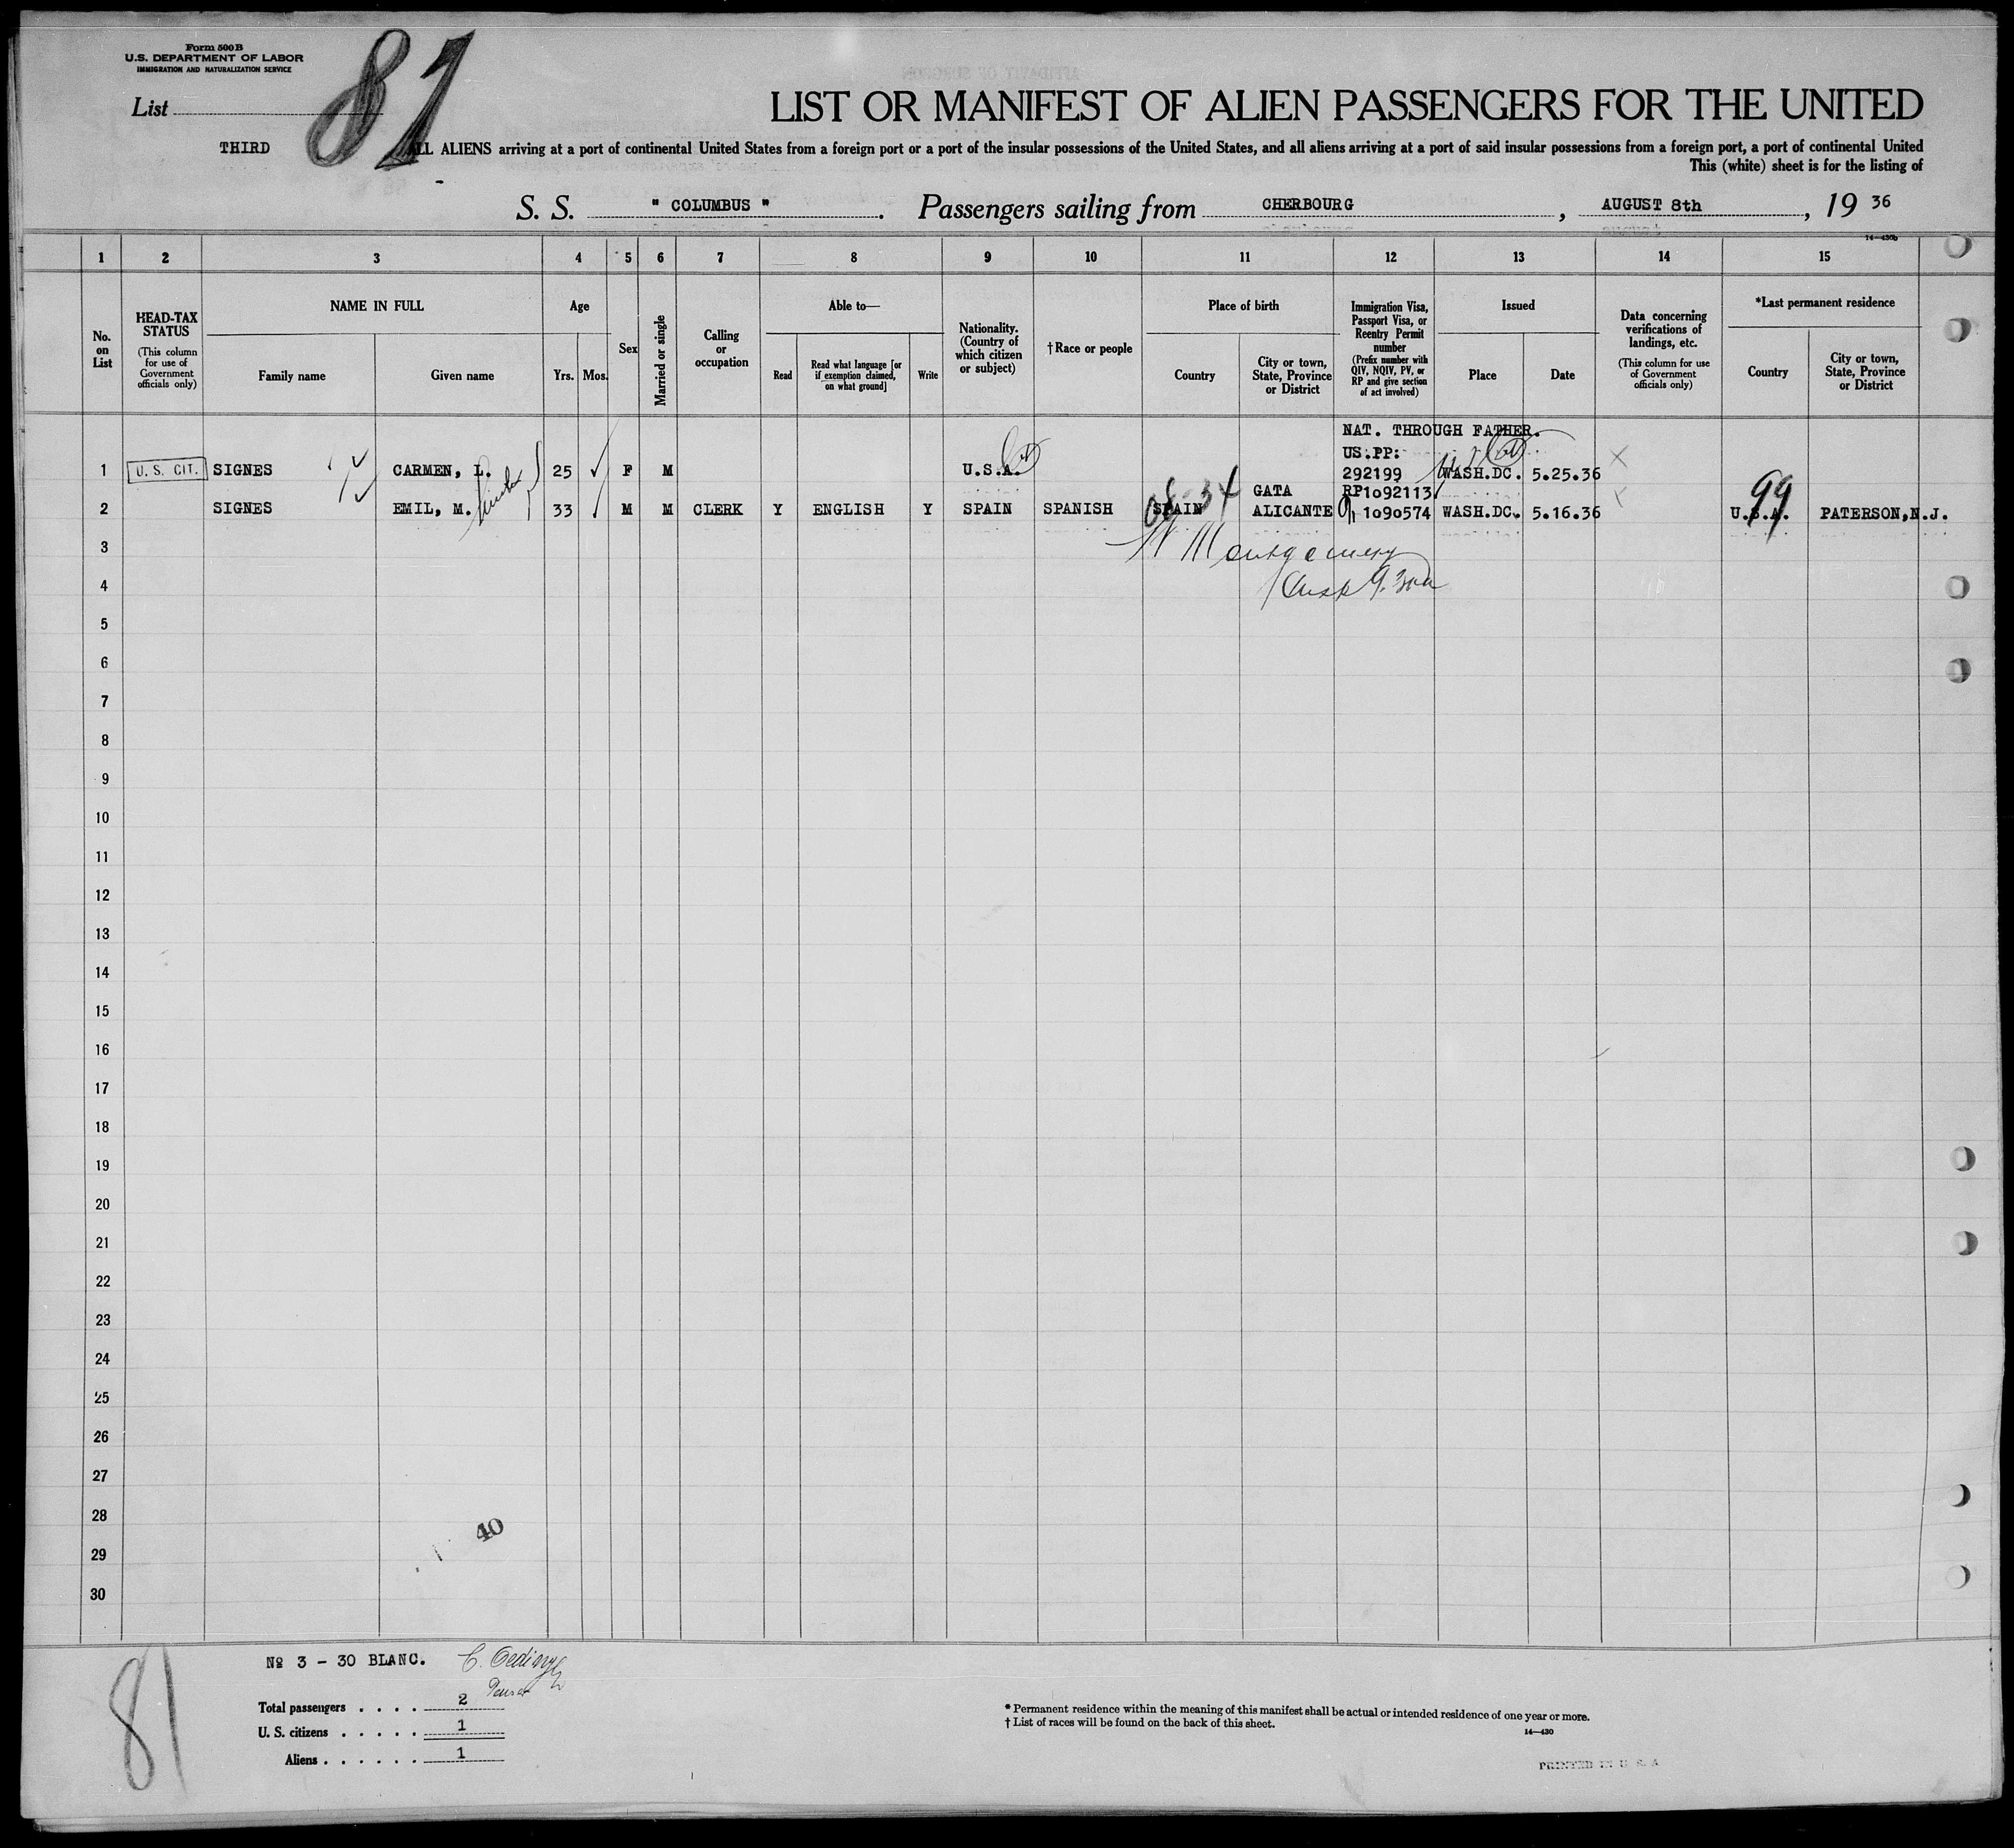 Form 500 B
U.S. DEPARTMENT OF LABOR
IMMIGRATION AND NATURALIZATION SERVICE
List 81
LIST OR MANIFEST OF ALIEN PASSENGERS FOR THE UNITED
THIRD
ALL ALIENS arriving at a port of continental United States from a foreign port or a port of the insular possessions of the United States, and all aliens arriving at a port of said insular possessions from a foreign port, a port of continental United
This (white) sheet is for the listing of
S. S. " COLUMBUS ". Passengers sailing from CHERBOURG, AUGUST 8th, 19 36
14—430b
1 2 3 4 5 6 7 8 9 10 11 12 13 14 15
No. on List
HEAD-TAX STATUS
(This column for use of Government officials only)
NAME IN FULL
Family name
Given name
Age
Yrs. Mos.
Sex
Married or single
Calling or occupation
Able to—
Read
Read what language [or if exemption claimed, on what ground]
Write
Nationality. (Country of which citizen or subject)
†Race or people
Place of birth
Country
City or town, State, Province or District
Immigration Visa, Passport Visa, or Reentry Permit number
(Prefix number with QIV, NQIV, PV, or RP and give section of act involved)
Issued
Place
Date
Data concerning verifications of landings, etc.
(This column for use of Government officials only)
*Last permanent residence
Country
City or town, State, Province or District
NAT. THROUGH FATHER.
US.PP:
1 U. S. CIT. SIGNES CARMEN, L. 25 F M U.S.A. 292199 WASH.DC. 5.25.36
GATA RP1o92113
2 SIGNES EMIL, M. 33 M M CLERK Y ENGLISH Y SPAIN SPANISH SPAIN ALICANTE 1o9o574 WASH.DC. 5.16.36 U.S.A. PATERSON,N.J.
99
3
Montgomery
4
5
6
7
8
9
10
11
12
13
14
15
16
17
18
19
20
21
22
23
24
25
26
27
28
40
29
30
81
№ 3 - 30 BLANC.
Total passengers . . . . 2
U. S. citizens . . . . . 1
Aliens . . . . . . 1
* Permanent residence within the meaning of this manifest shall be actual or intended residence of one year or more.
† List of races will be found on the back of this sheet.
14—430
PRINTED IN U S A